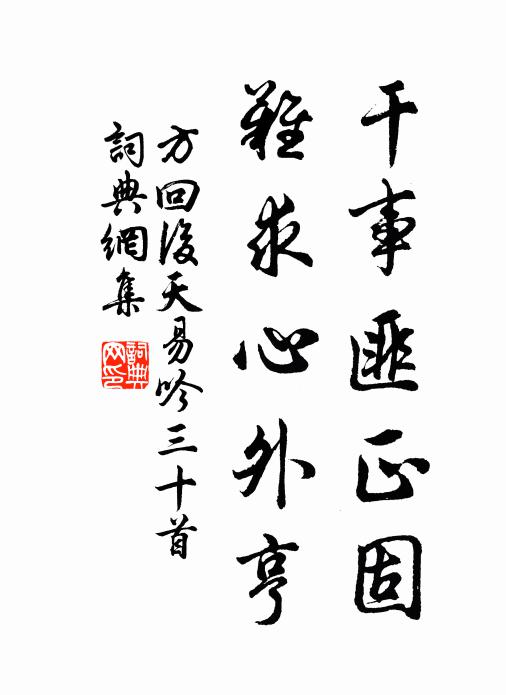 干事匪正固
難求心外亨
方回後天易吟三十首
詞典網集
詞典網印